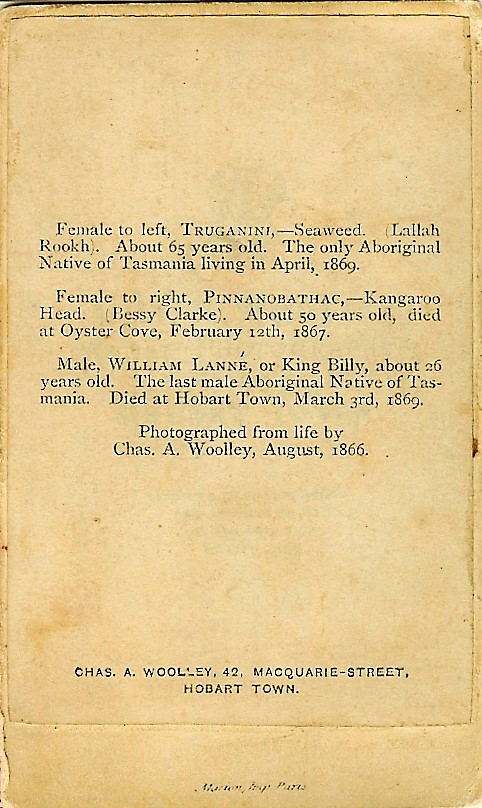 Female to left, TRUGANINI,—Seaweed. (Lallah
Rookh). About 65 years old. The only Aboriginal
Native of Tasmania living in April, 1869.
Female to right, PINNANOBATHAC,—Kangaroo
Head. (Bessy Clarke). About 50 years old, died
at Oyster Cove, February 12th, 1867.
Male, WILLIAM LANNÉ, or King Billy, about 26
years old. The last male Aboriginal Native of Tas-
mania. Died at Hobart Town, March 3rd, 1869.
Photographed from life by
Chas. A. Woolley, August, 1866.
CHAS. A. WOOLLEY, 42, MACQUARIE-STREET,
HOBART TOWN.
Marion, Imp. Paris